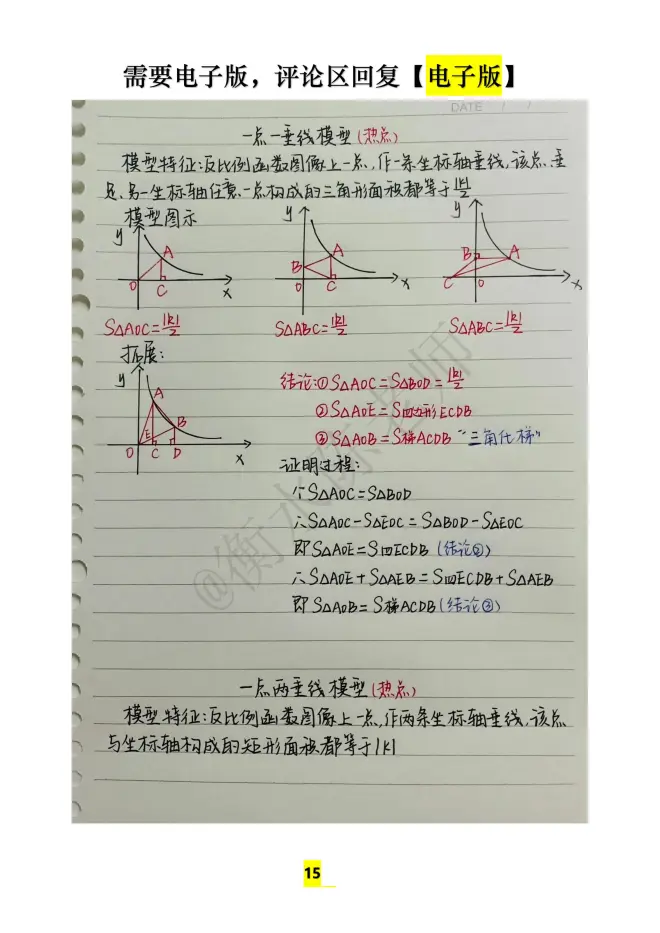 需要电子版，评论区回复【电子版】
DATE / /
一点一垂线模型(热点)
模型特征:反比例函数图像上一点,作一条坐标轴垂线,该点、垂
足、另一坐标轴任意一点构成的三角形面积都等于|k|/2
模型图示
y A O C x
y A B O C x
y B A C O x
S△AOC=|k|/2 S△ABC=|k|/2 S△ABC=|k|/2
拓展:
y A B E O C D x
结论:①S△AOC=S△BOD=|k|/2
②S△AOE=S四边形ECDB
③S△AOB=S梯ACDB "三角化梯"
证明过程:
∵S△AOC=S△BOD
∴S△AOC-S△EOC=S△BOD-S△EOC
即S△AOE=S四ECDB(结论②)
∴S△AOE+S△AEB=S四ECDB+S△AEB
即S△AOB=S梯ACDB(结论③)
@衡水陈老师
一点两垂线模型(热点)
模型特征:反比例函数图像上一点,作两条坐标轴垂线,该点
与坐标轴构成的矩形面积都等于|k|
15